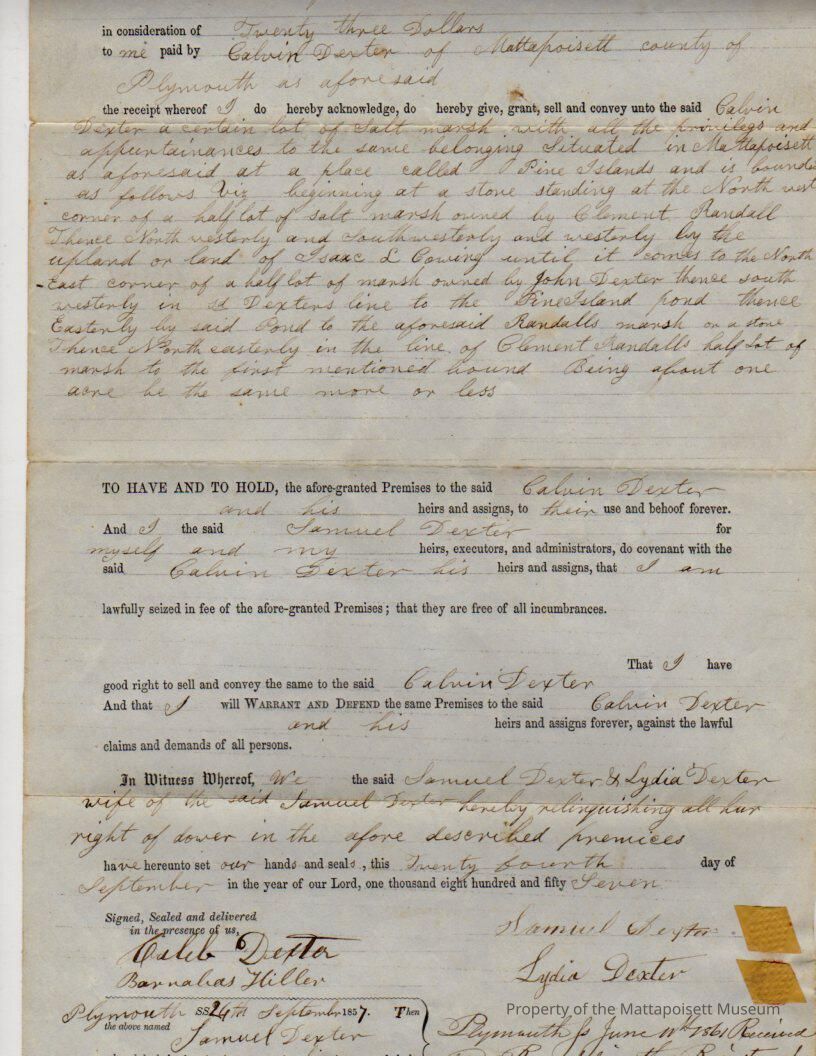 in consideration of Twenty three Dollars
to me paid by Calvin Dexter of Mattapoisett county of
Plymouth as aforesaid
the receipt whereof I do hereby acknowledge, do hereby give, grant, sell and convey unto the said Calvin
Dexter a certain lot of Salt marsh with all the privilegs and
appurtainances to the same belonging Situated in Mattapoisett
as aforesaid at a place called Pine Islands and is bounded
as follows Viz beginning at a stone standing at the North west
corner of a half lot of salt marsh owned by Clement Randall
Thence North westerly and Southwesterly and westerly by the
upland or land of Isaac L Cowing until it comes to the North
East corner of a half lot of marsh owned by John Dexter thence south
westerly in sd Dexters line to the Pine Island pond thence
Easterly by said Pond to the aforesaid Randalls marsh or a stone
Thence North easterly in the line of Clement Randalls half Lot of
marsh to the first mentioned bound Being about one
acre be the same more or less
TO HAVE AND TO HOLD, the afore-granted Premises to the said Calvin Dexter
and his heirs and assigns, to their use and behoof forever.
And I the said Samuel Dexter for
myself and my heirs, executors, and administrators, do covenant with the
said Calvin Dexter his heirs and assigns, that I am
lawfully seized in fee of the afore-granted Premises; that they are free of all incumbrances.
That I have
good right to sell and convey the same to the said Calvin Dexter
And that I will WARRANT AND DEFEND the same Premises to the said Calvin Dexter
and his heirs and assigns forever, against the lawful
claims and demands of all persons.
In Witness Whereof, We the said Samuel Dexter & Lydia Dexter
wife of the said Samuel Dexter hereby relinquishing all hur
right of dower in the afore described premices
have hereunto set our hands and seals, this Twenty fourth day of
September in the year of our Lord, one thousand eight hundred and fifty Seven
Signed, Sealed and delivered
in the presence of us,
Caleb Dexter
Barnabas Hiller
Samuel Dexter
Lydia Dexter
Plymouth SS 24th September 1857. Then
the above named Samuel Dexter
Plymouth ss June 11th 1861 Received
Property of the Mattapoisett Museum